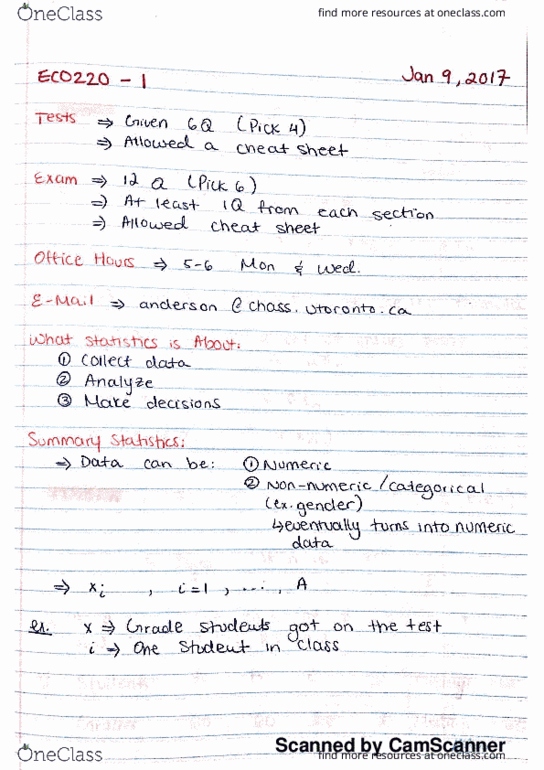 OneClass
find more resources at oneclass.com
ECO220 - 1
Jan 9, 2017
Tests ⇒ Given 6Q (Pick 4)
⇒ Allowed a cheat sheet
Exam ⇒ 12 Q (Pick 6)
⇒ At least 1Q from each section
⇒ Allowed cheat sheet
Office Hours ⇒ 5-6 Mon & Wed.
E-Mail ⇒ anderson @ chass.utoronto.ca
What statistics is About:
① Collect data
② Analyze
③ Make decisions
Summary Statistics:
⇒ Data can be: ① Numeric
② Non-numeric / categorical
(ex. gender)
↳ eventually turns into numeric
data
⇒ xi , i=1 , ... , A
ex. x ⇒ Grade students got on the test
i → One student in class
Scanned by CamScanner
OneClass
find more resources at oneclass.com